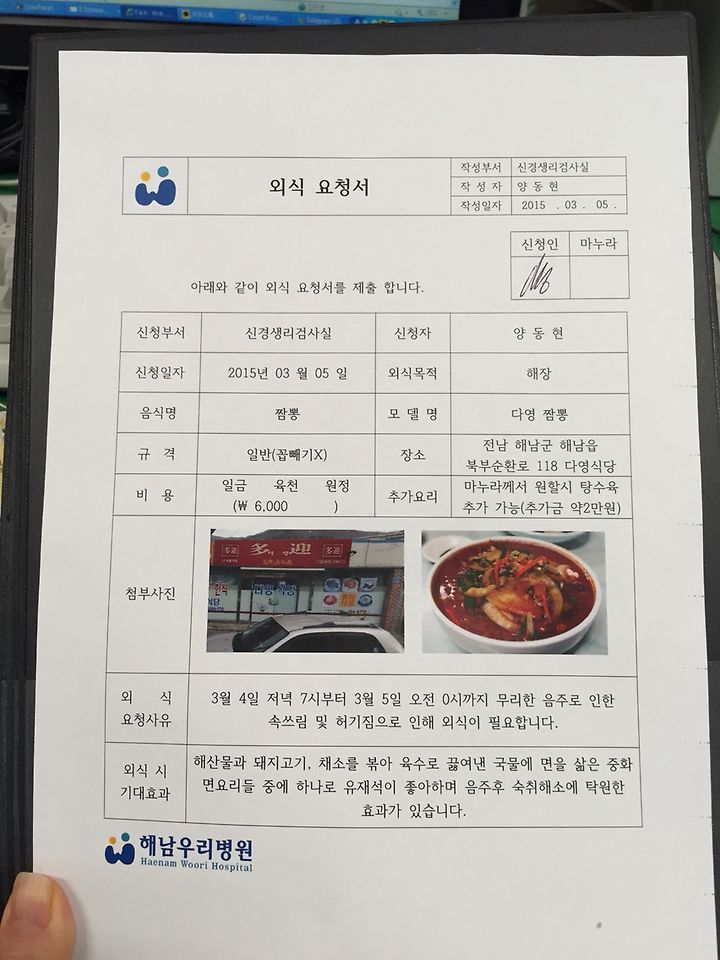 외식 요청서
작성부서 신경생리검사실
작 성 자 양 동 현
작성일자 2015 . 03 . 05 .
신청인 마누라
아래와 같이 외식 요청서를 제출 합니다.
신청부서 신경생리검사실 신청자 양 동 현
신청일자 2015년 03 월 05 일 외식목적 해장
음식명 짬뽕 모 델 명 다영 짬뽕
규 격 일반(꼽빼기X) 장소 전남 해남군 해남읍
북부순환로 118 다영식당
비 용 일금 육천 원정 추가요리 마누라께서 원할시 탕수육
(₩ 6,000 ) 추가 가능(추가금 약2만원)
첨부사진
多 迎
외 식
요청사유
3월 4일 저녁 7시부터 3월 5일 오전 0시까지 무리한 음주로 인한
속쓰림 및 허기짐으로 인해 외식이 필요합니다.
외식 시
기대효과
해산물과 돼지고기, 채소를 볶아 육수로 끓여낸 국물에 면을 삶은 중화
면요리들 중에 하나로 유재석이 좋아하며 음주후 숙취해소에 탁원한
효과가 있습니다.
해남우리병원
Haenam Woori Hospital